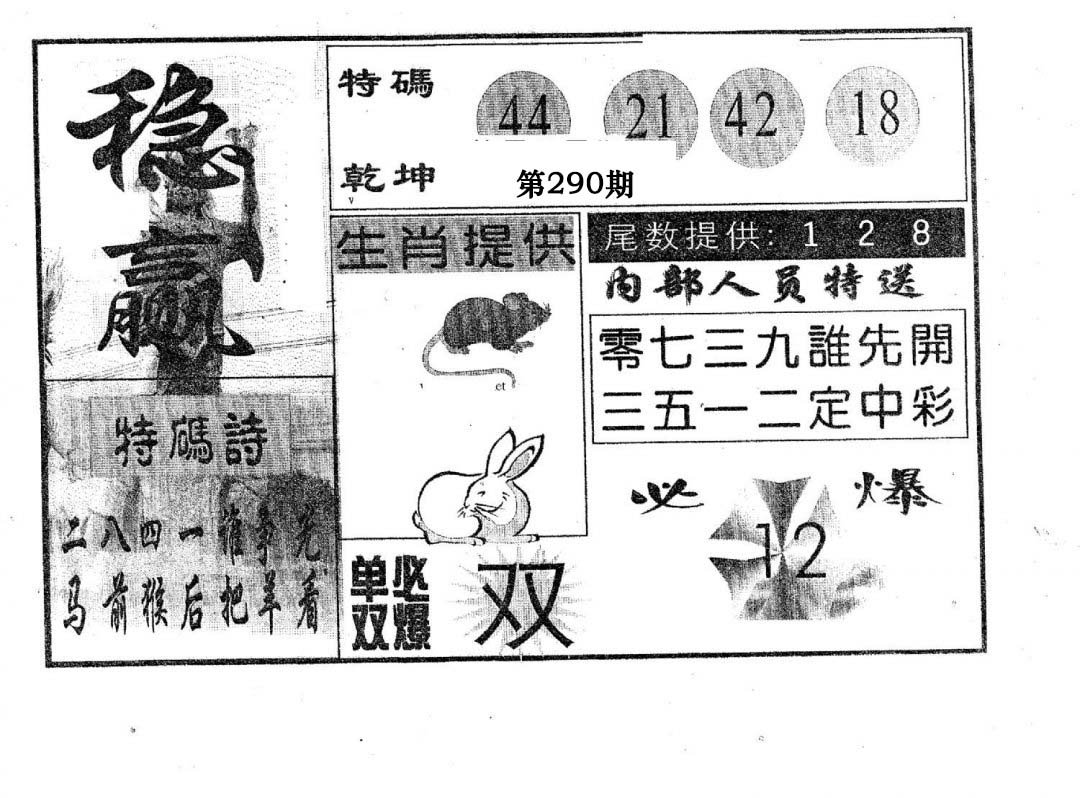 稳赢
特碼
44 21 42 18
乾坤
第290期
生肖提供
尾数提供: 1 2 8
内部人员特送
零七三九誰先開
三五一二定中彩
特碼詩
二八四一谁争先
马前猴后把羊看
必爆
12
单双必爆
双